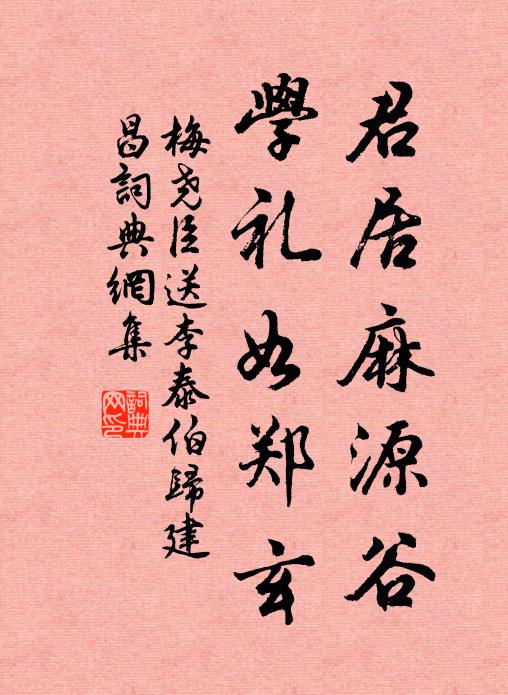 君居麻源谷
學礼如郑玄
梅尧臣送李泰伯歸建
昌詞典網集
詞典
网印